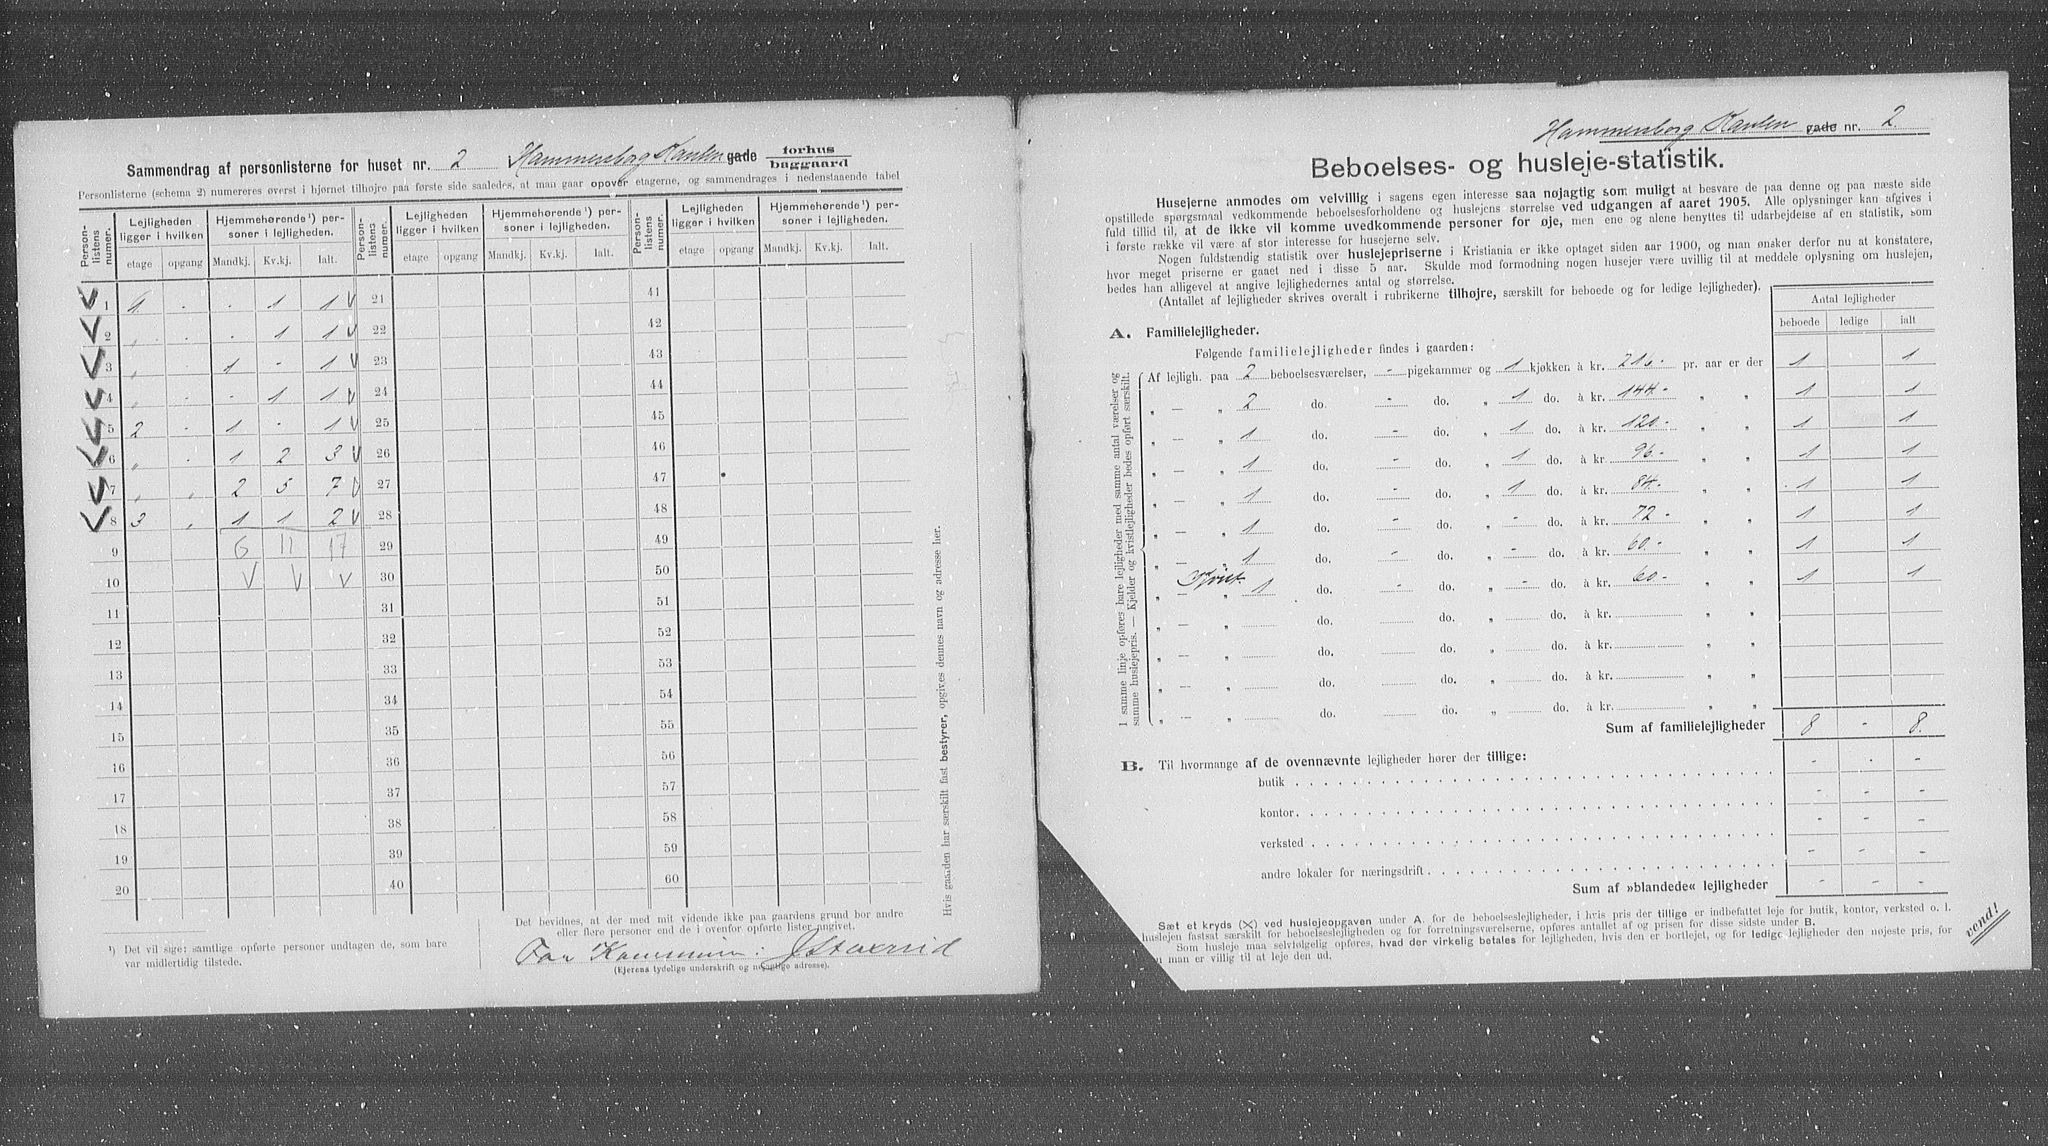 Sammendrag af personlisterne for huset nr. 2 Hammersborg Kanten gade forhus baggaard
Personlisterne (schema 2) numereres øverst i hjørnet tilhøjre paa første side saaledes, at man gaar opover etagerne, og sammendrages i nedenstaaende tabel
Person-listens numer. Lejligheden ligger i hvilken Hjemmehørende¹) personer i lejligheden. Person-listens numer. Lejligheden ligger i hvilken Hjemmehørende¹) personer i lejligheden. Person-listens numer. Lejligheden ligger i hvilken Hjemmehørende¹) personer i lejligheden.
etage opgang Mandkj. Kv.kj. Ialt. etage opgang Mandkj. Kv.kj. Ialt. etage opgang Mandkj. Kv.kj. Ialt.
V 1 1 . . 1 1 V 21 41
V 2 „ . . 1 1 V 22 42
V 3 „ . 1 - 1 V 23 43
V 4 „ . - 1 1 V 24 44
V 5 2 . 1 - 1 V 25 45
V 6 „ . 1 2 3 V 26 46
V 7 „ „ 2 5 7 V 27 47
V 8 3 „ 1 1 2 V 28 48
9 6 11 17 29 49
10 V V V 30 50
11 31 51
12 32 52
13 33 53
14 34 54
15 35 55
16 36 56
17 37 57
18 38 58
19 39 59
20 40 60
Hvis gaarden har særskilt fast bestyrer, opgives dennes navn og adresse her.
¹) Det vil sige: samtlige opførte personer undtagen de, som bare
var midlertidig tilstede.
Det bevidnes, at der med mit vidende ikke paa gaardens grund bor andre
eller flere personer end de i ovenfor opførte lister angivet.
For Kommunen:
(Ejerens tydelige underskrift og nøjagtige adresse).
Hammersborg Kanten gade nr. 2.
Beboelses- og husleje-statistik.
Husejerne anmodes om velvillig i sagens egen interesse saa nøjagtig som muligt at besvare de paa denne og paa næste side
opstillede spørgsmaal vedkommende beboelsesforholdene og huslejens størrelse ved udgangen af aaret 1905. Alle oplysninger kan afgives i
fuld tillid til, at de ikke vil komme uvedkommende personer for øje, men ene og alene benyttes til udarbejdelse af en statistik, som
i første række vil være af stor interesse for husejerne selv.
Nogen fuldstændig statistik over huslejepriserne i Kristiania er ikke optaget siden aar 1900, og man ønsker derfor nu at konstatere,
hvor meget priserne er gaaet ned i disse 5 aar. Skulde mod formodning nogen husejer være uvillig til at meddele oplysning om huslejen,
bedes han alligevel at angive lejlighedernes antal og størrelse.
(Antallet af lejligheder skrives overalt i rubrikerne tilhøjre, særskilt for beboede og for ledige lejligheder).
Antal lejligheder
beboede ledige ialt
A. Familielejligheder.
Følgende familielejligheder findes i gaarden:
I samme linje opføres bare lejligheder med samme antal værelser og
samme huslejepris. — Kjelder og kvistlejligheder bedes opført særskilt.
Af lejligh. paa 2 beboelsesværelser, - pigekammer og 1 kjøkken à kr. 216.- pr. aar er der 1 1
„ — „ 2 do. - do. „ 1 do. à kr. 144.- „ „ 1 1
„ — „ 1 do. - do. „ 1 do. à kr. 120.- „ „ 1 1
„ — „ 1 do. - do. „ 1 do. à kr. 96.- „ „ 1 1
„ — „ 1 do. - do. „ 1 do. à kr. 84.- „ „ 1 1
„ — „ 1 do. - do. „ - do. à kr. 72.- „ „ 1 1
„ — „ 1 do. - do. „ - do. à kr. 60.- „ „ 1 1
„ — Kvist „ 1 do. - do. „ - do. à kr. 60.- „ „ 1 1
„ — „ do. do. „ do. à kr. „ „
„ — „ do. do. „ do. à kr. „ „
„ — „ do. do. „ do. à kr. „ „
„ — „ do. do. „ do. à kr. „ „
Sum af familielejligheder 8 - 8.
B. Til hvormange af de ovennævnte lejligheder hører der tillige:
butik - - -
kontor - - -
verksted - - -
andre lokaler for næringsdrift - - -
Sum af »blandede« lejligheder - - -
Sæt et kryds (X) ved huslejeopgaven under A. for de beboelseslejligheder, i hvis pris der tillige er indbefattet leje for butik, kontor, verksted o. l.
huslejen fastsat særskilt for beboelseslejligheden og for forretningsværelserne, opføres antallet af og prisen for disse sidste under B.
Som husleje maa selvfølgelig opføres, hvad der virkelig betales for lejligheden, hvis den er bortlejet, og for ledige lejligheder den nøjeste pris, for
man er villig til at leje den ud.
vend!